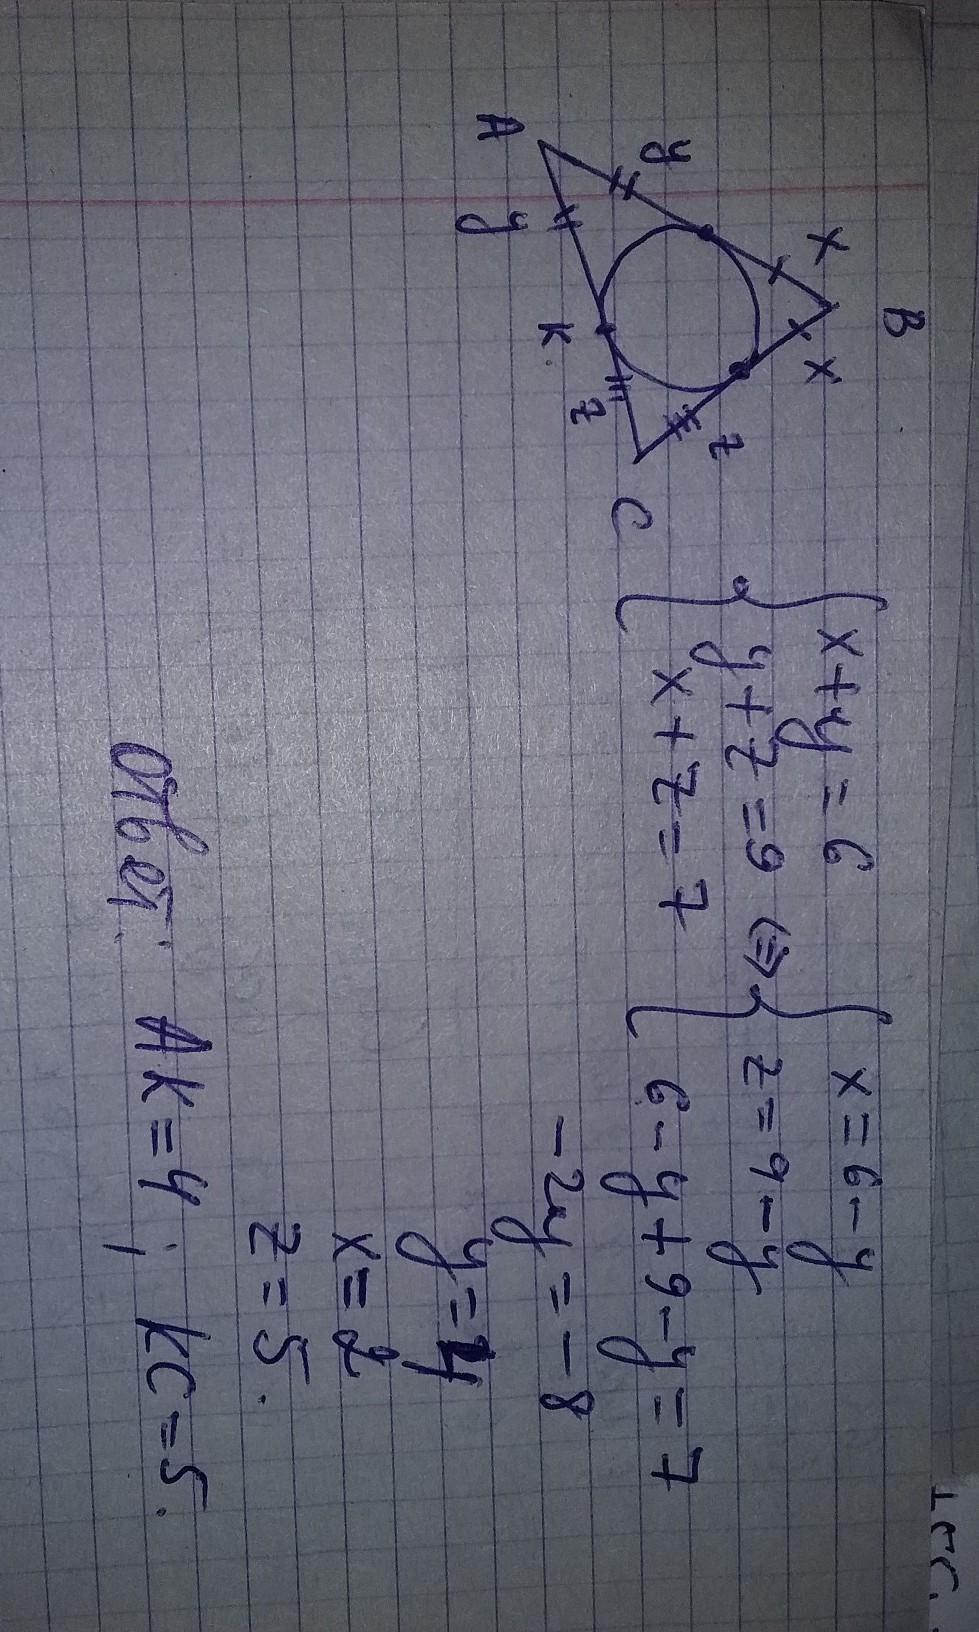 B
x x
y z
A y K z C
{ x+y=6
y+z=9 <=>
x+z=7
{ x=6-y
z=9-y
6-y+9-y=7
-2y=-8
y=4
x=2
z=5.
Ответ: AK=4; KC=5.